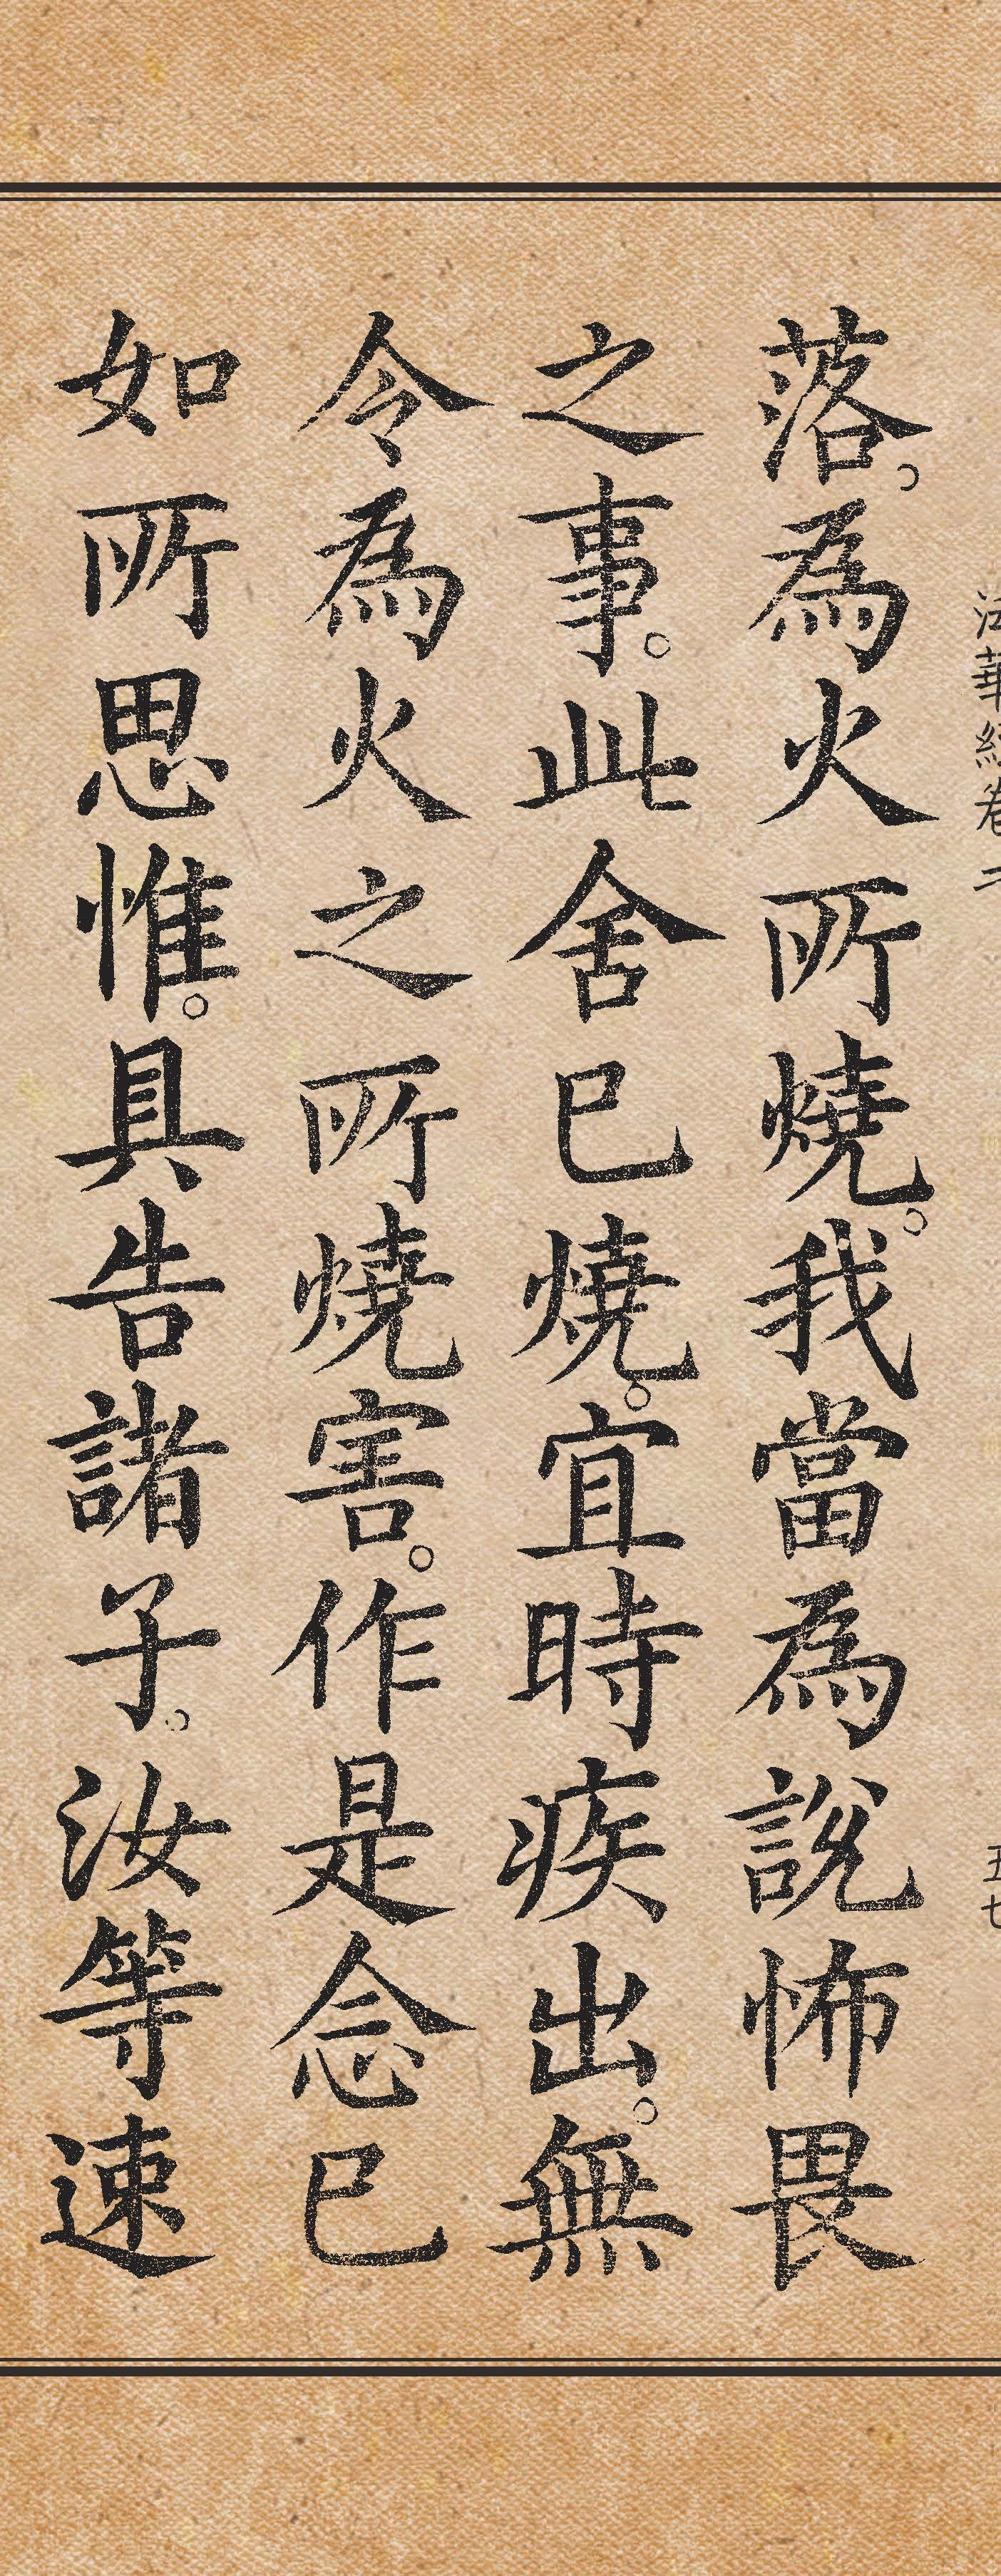 法華經卷二 五七
落。為火所燒。我當為說怖畏
之事。此舍已燒。宜時疾出。無
令為火之所燒害。作是念已
如所思惟。具告諸子。汝等速